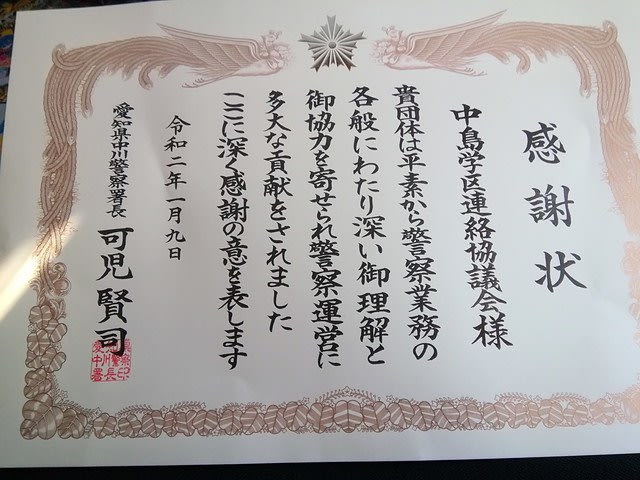 感謝状
中島学区連絡協議会様
貴団体は平素から警察業務の
各般にわたり深い御理解と
御協力を寄せられ警察運営に
多大な貢献をされました
ここに深く感謝の意を表します
令和二年一月九日
愛知県中川警察署長 可児賢司